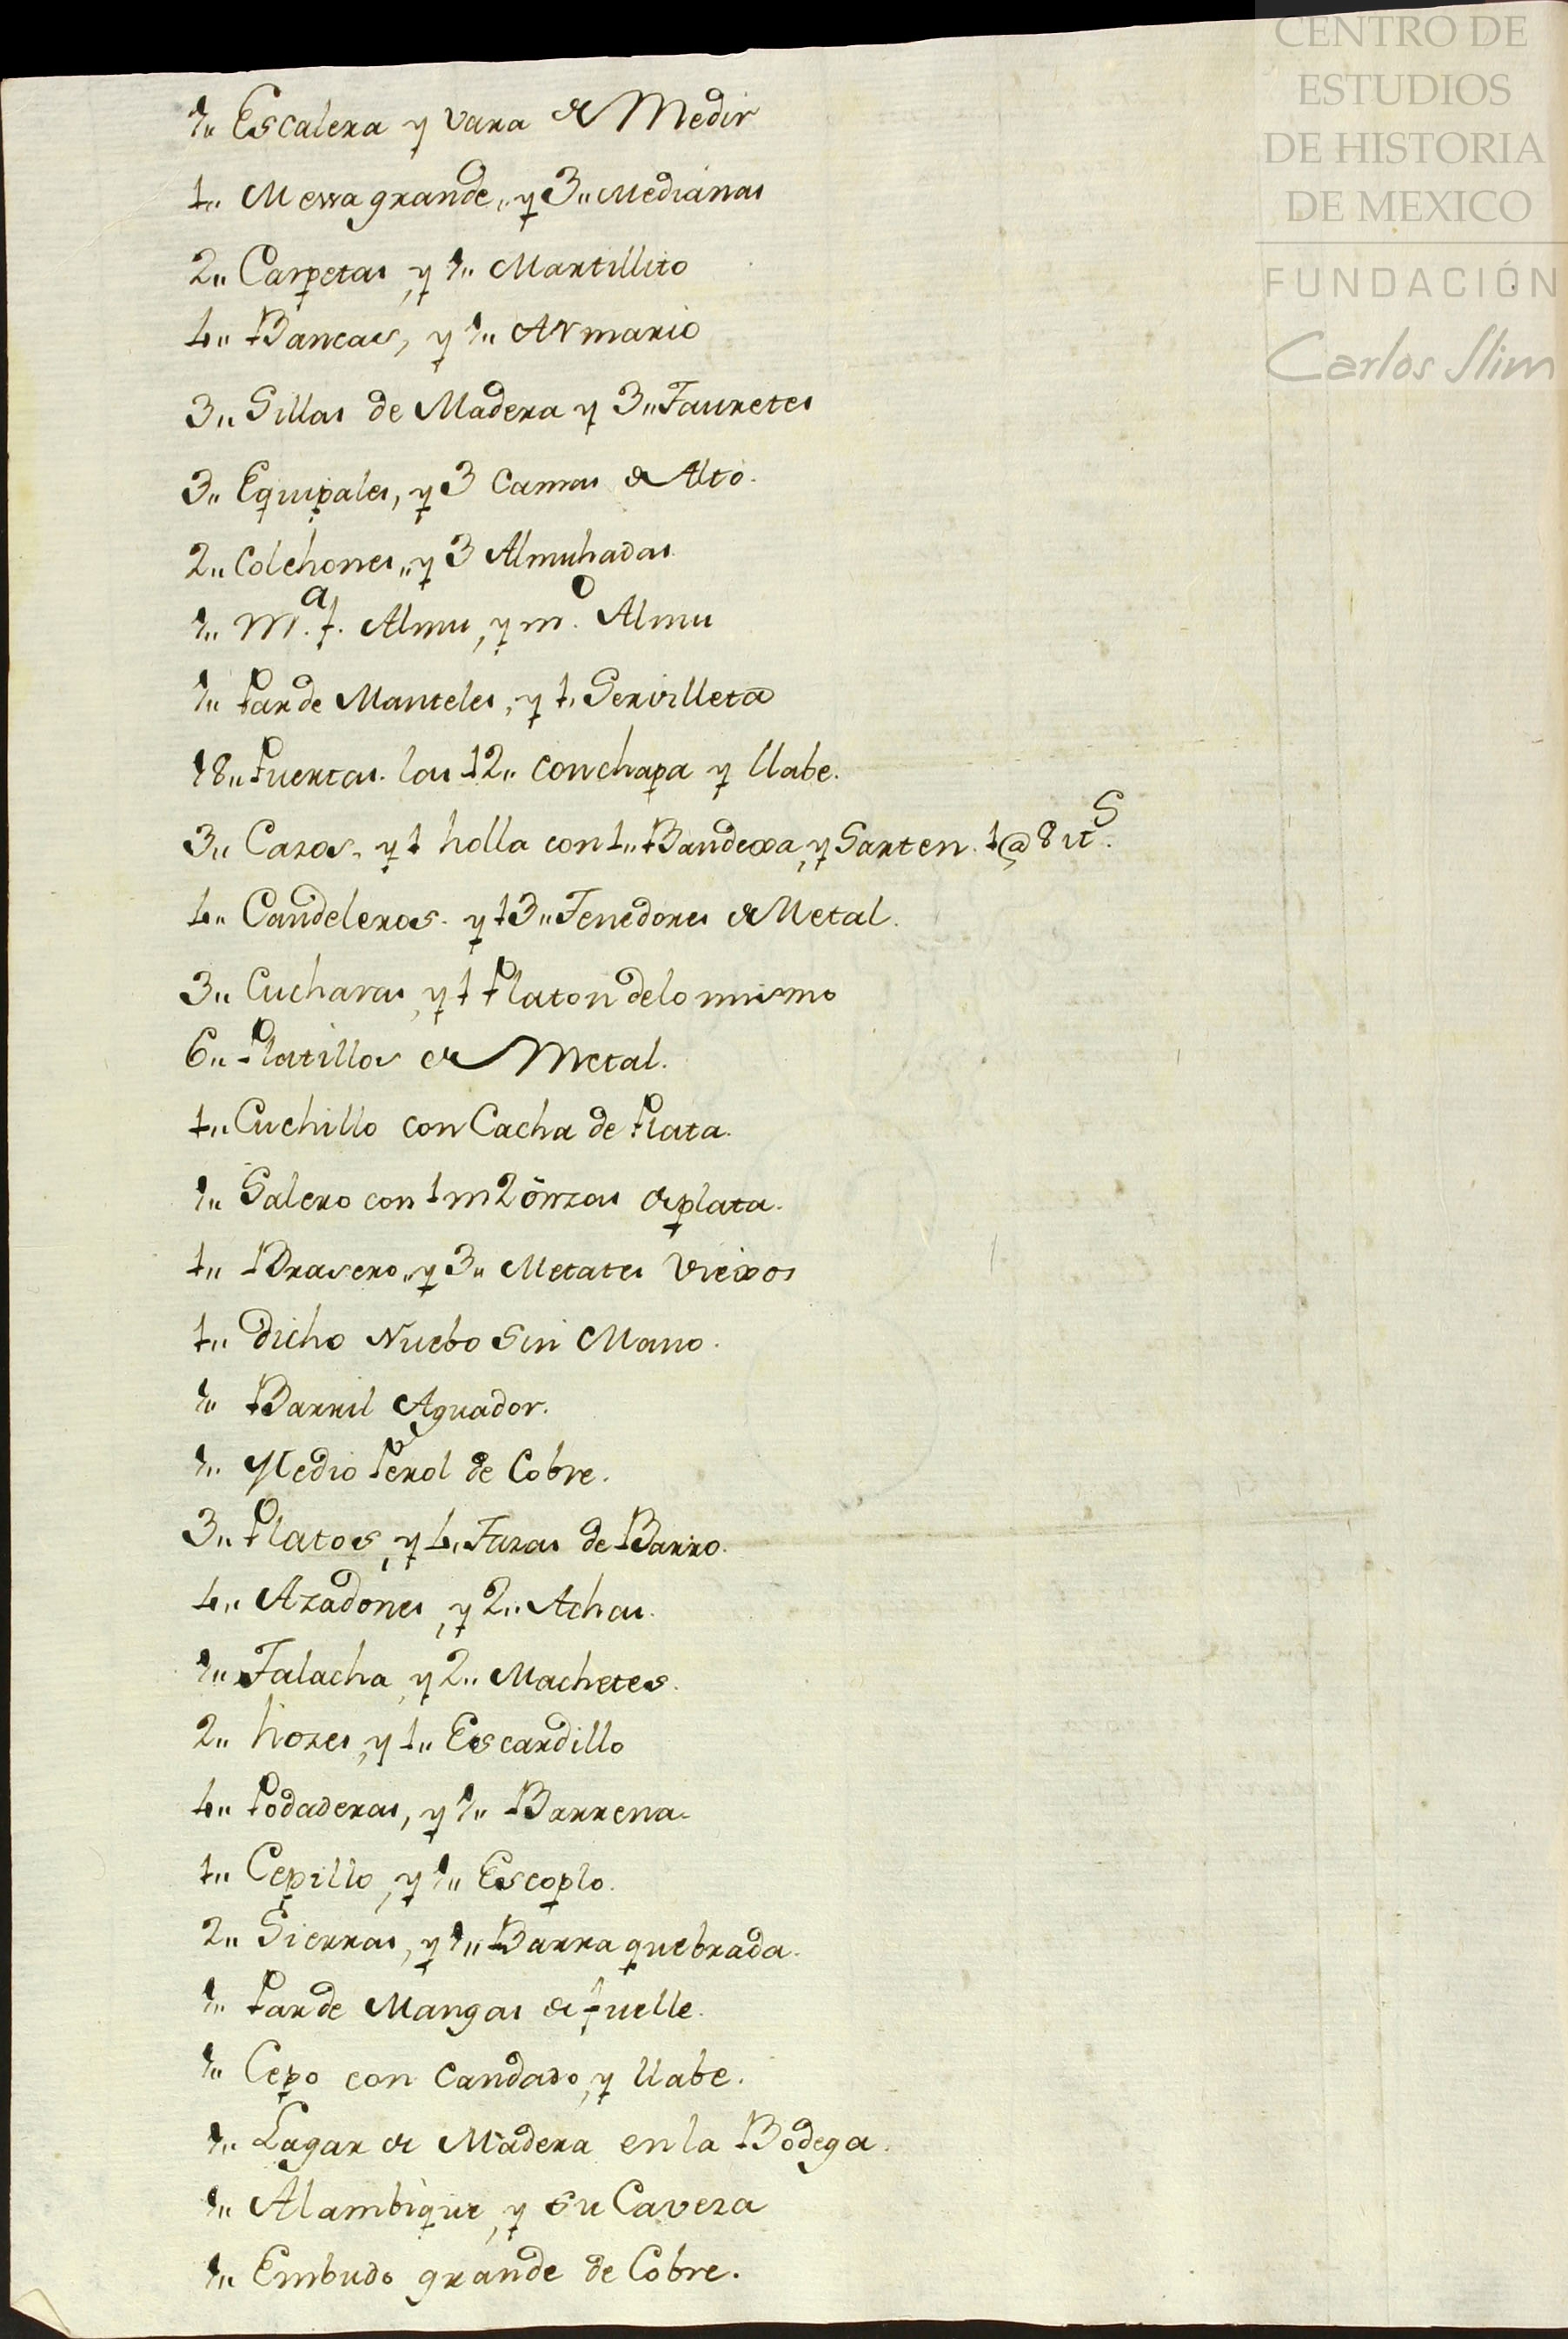 1,, Escalera y vara de Medir
1,, Messa grande,, y 3,, Medianas
2,, Carpetas, y 1,, Martillito
4,, Bancas, y 1,, Armario
3,, Sillas de Madera y 3,, Tauretes
3,, Equipales, y 3 Camas de Alto.
2,, Colchones,, y 3 Almuhadas
1,, M.a f. Almu, y m.o Almu
1,, Par de Manteles, y 1, Servilleta
18,, Puertas. las 12,, con chapa y llabe.
3,, Cazos, y 1 holla con 1,, Bandexa, y Sarten. 1@ 8 lts.
4,, Candeleros. y 13,, Tenedores de Metal.
3,, Cucharas, y 1 Platon de lo mismo
6,, Platillos de Metal.
1,, Cuchillo con Cacha de Plata.
1,, Salero con 1 m 2 onzas de plata.
1,, Brasero,, y 3,, Metates Viexos
1,, dicho Nuebo Sin Mano.
1,, Barril Aguador.
1,, Medio Perol de Cobre.
3,, Platos, y 4,, Tazas de Barro.
4,, Azadones, y 2,, Achas.
1,, Talacha, y 2,, Machetes.
2,, hozes, y 1,, Escardillo
4,, Podaderas, y 1,, Barrena.
1,, Cepillo, y 1,, Escoplo.
2,, Sierras, y 1,, Barra quebrada.
1,, Par de Mangas de fuelle.
1,, Cepo con Candado, y llabe.
1,, Lagar de Madera en la Bodega.
1,, Alambique, y su Caveza
1,, Embudo grande de Cobre.
CENTRO DE
ESTUDIOS
DE HISTORIA
DE MEXICO
FUNDACIÓN
Carlos Slim